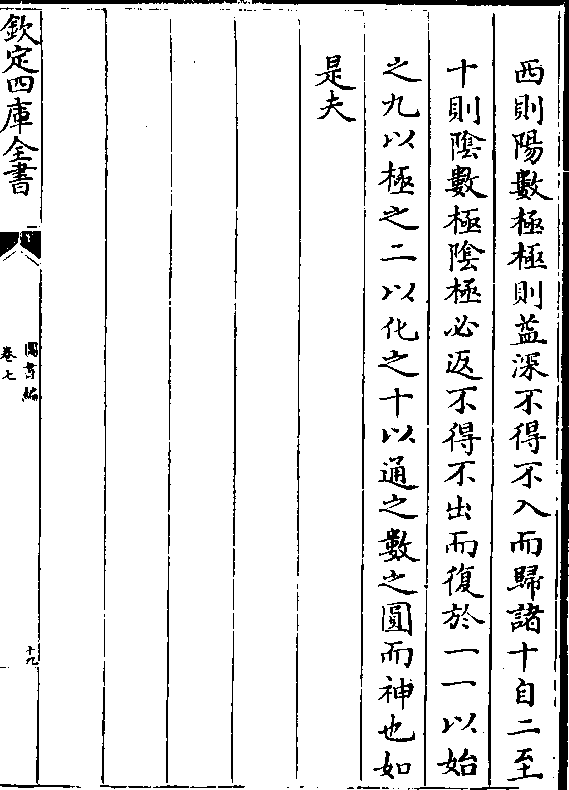 西則陽數極極則益深不得不入而歸諸十自二至
十則陰數極陰極必返不得不出而復於一一以始
之九以極之二以化之十以通之數之圓而神也如
是夫
欽定四庫全書
圖書編
卷七
十九